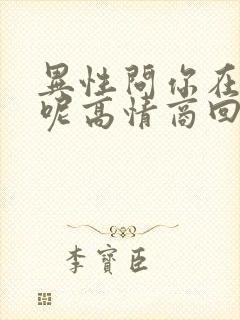 異性問你在
呢高情商回
李寶臣